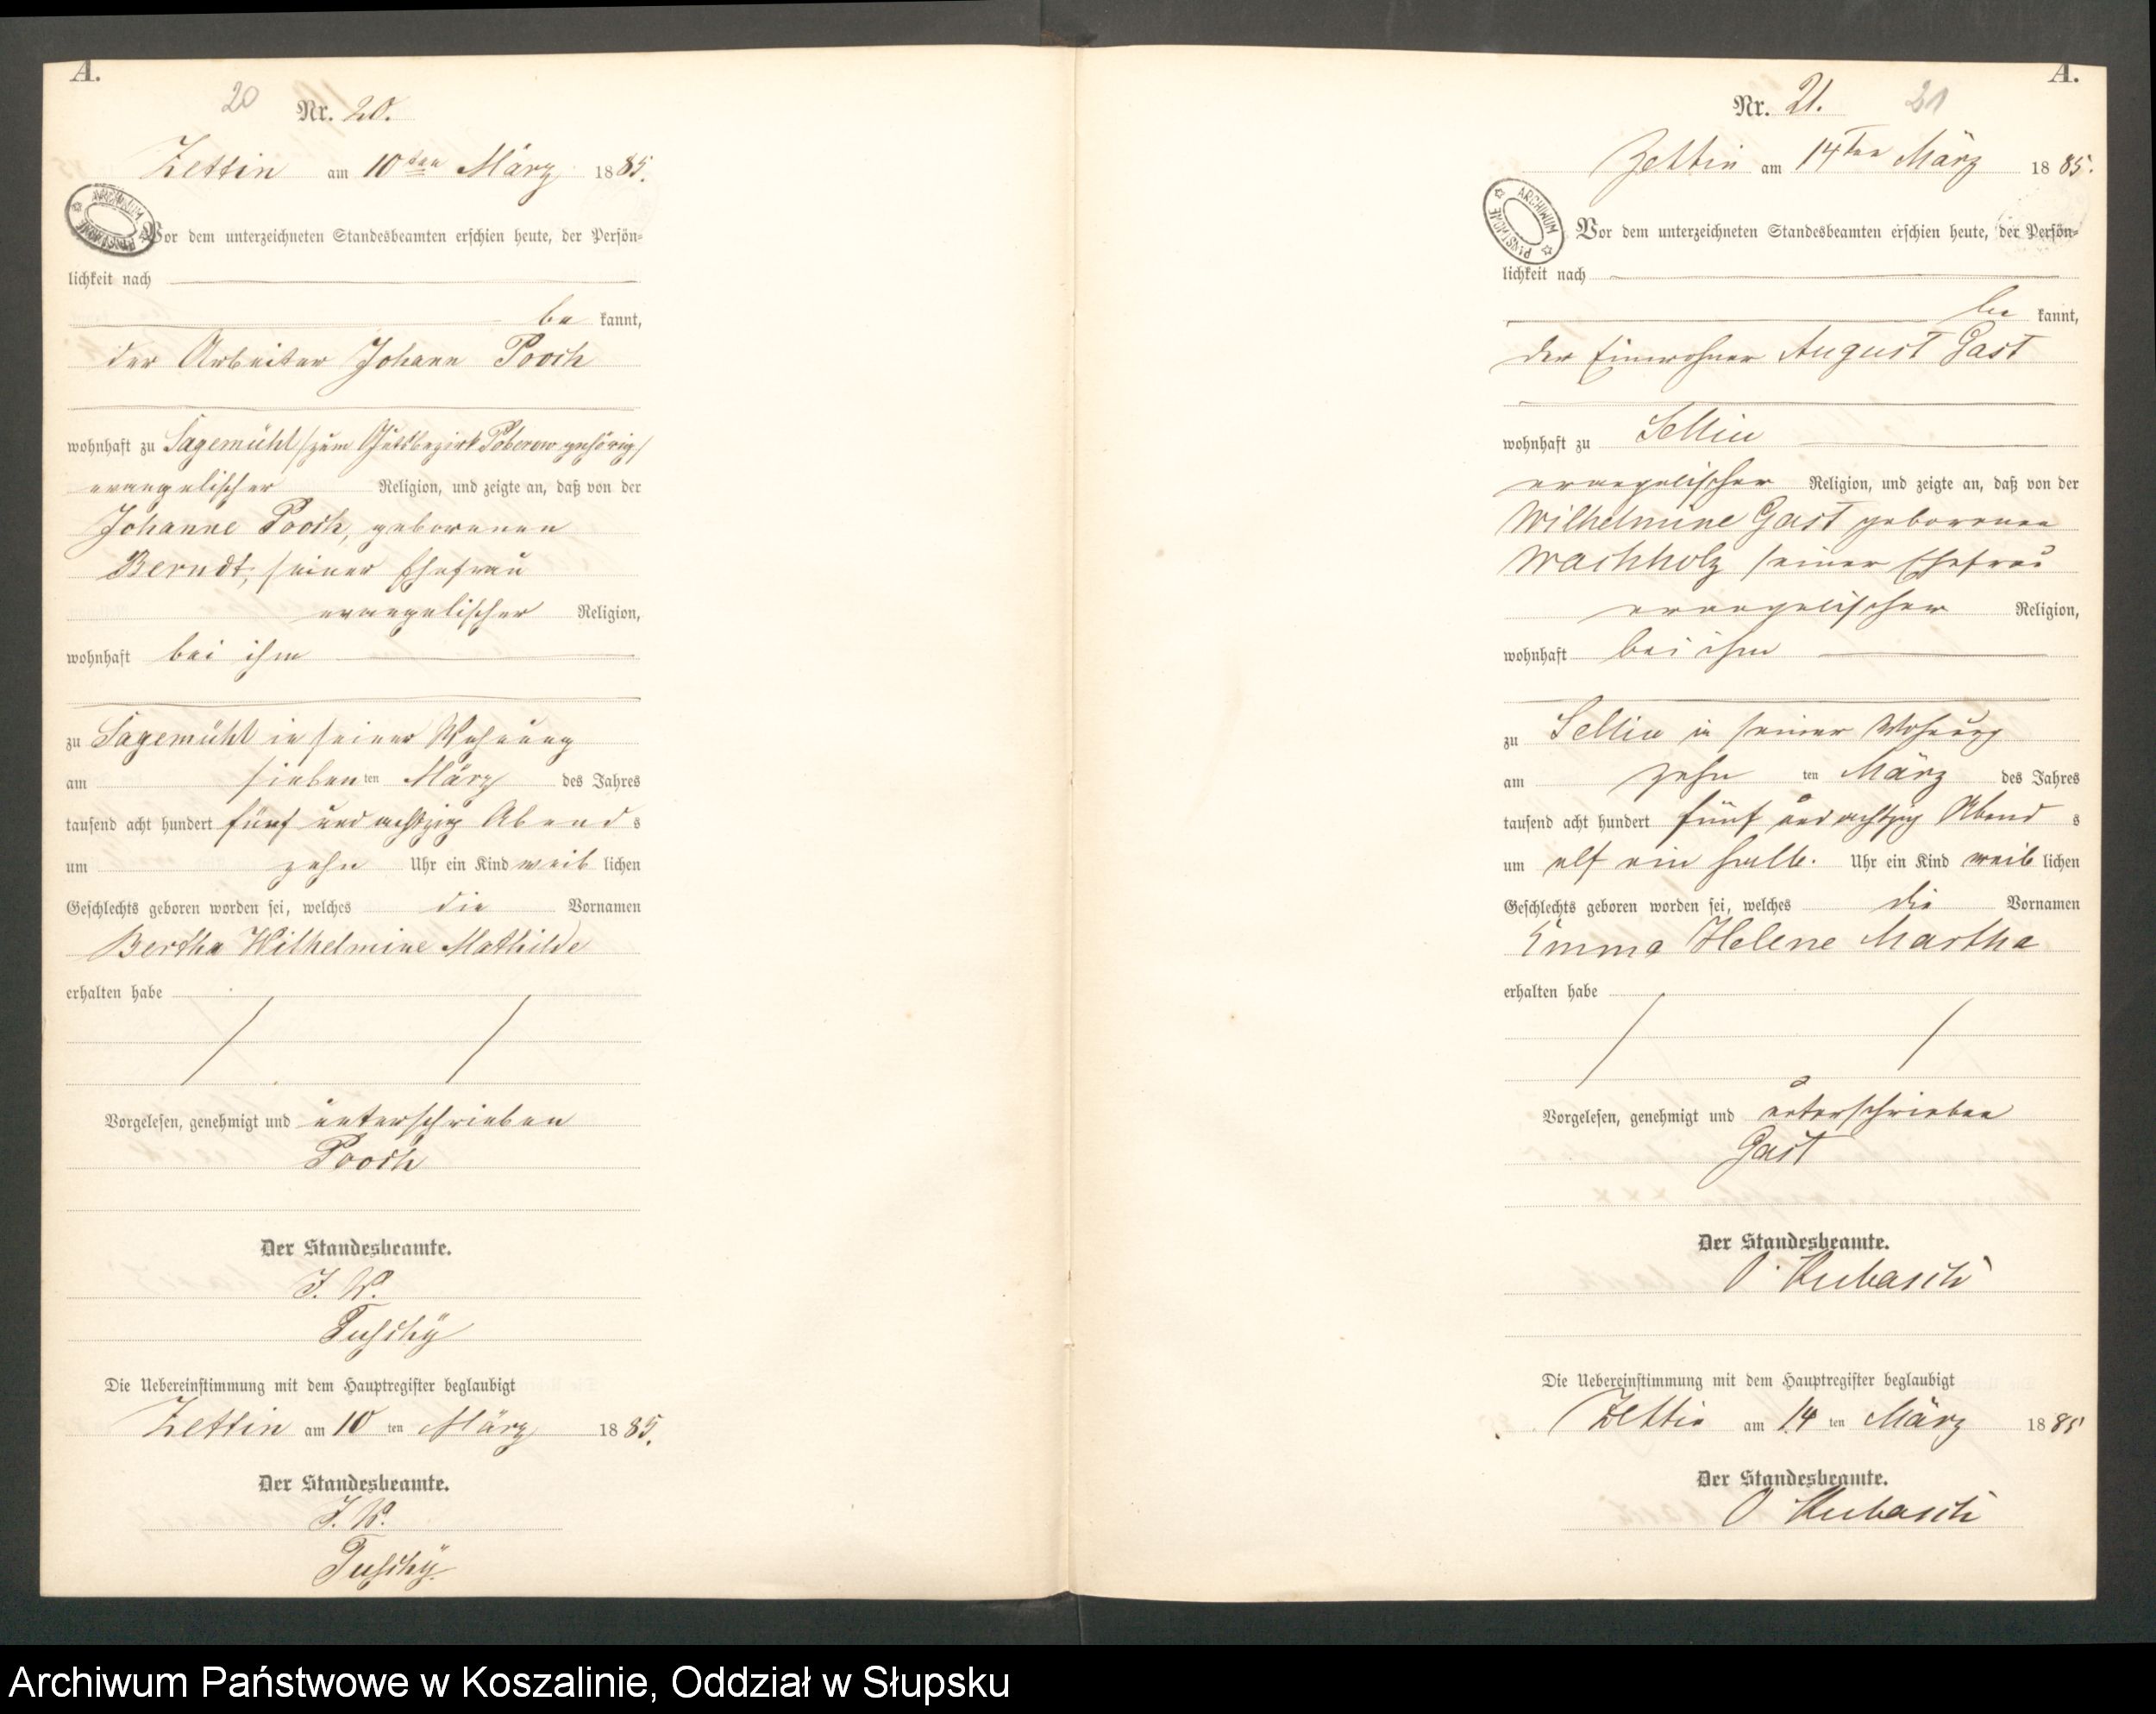 A.
20
Nr. 20.
Zettin am 10ten März 1885.
ARCHIWUM PAŃSTWOWE
Vor dem unterzeichneten Standesbeamten erschien heute, der Persön-
lichkeit nach
be kannt,
der Arbeiter Johann Pooch
wohnhaft zu Sagemühl (zum Gutsbezirk Poberow gehörig)
evangelischer Religion, und zeigte an, daß von der
Johanne Pooch, geborenen
Berndt, seiner Ehefrau
evangelischer Religion,
wohnhaft bei ihm
zu Sagemühl in seiner Wohnung
am sieben ten März des Jahres
tausend acht hundert fünf und achtzig Abend s
um zehn Uhr ein Kind weib lichen
Geschlechts geboren worden sei, welches die Vornamen
Bertha Wilhelmine Mathilde
erhalten habe
Vorgelesen, genehmigt und unterschrieben
Pooch
Der Standesbeamte.
J. V.
Die Uebereinstimmung mit dem Hauptregister beglaubigt
Zettin am 10 ten März 1885.
Der Standesbeamte.
J. V.
A.
Nr. 21. 21
Zettin am 14ten März 1885.
ARCHIWUM PAŃSTWOWE
Vor dem unterzeichneten Standesbeamten erschien heute, der Persön-
lichkeit nach
be kannt,
der Einwohner August Gast
wohnhaft zu Sellin
evangelischer Religion, und zeigte an, daß von der
Wilhelmine Gast geborenen
Wachholz seiner Ehefrau
evangelischer Religion,
wohnhaft bei ihm
zu Sellin in seiner Wohnung
am zehn ten März des Jahres
tausend acht hundert fünf und achtzig Abend s
um elf ein halb. Uhr ein Kind weib lichen
Geschlechts geboren worden sei, welches die Vornamen
Emma Helene Martha
erhalten habe
Vorgelesen, genehmigt und unterschrieben
Gast
Der Standesbeamte.
Kubasch
Die Uebereinstimmung mit dem Hauptregister beglaubigt
Zettin am 14 ten März 1885
Der Standesbeamte.
Kubasch
Archiwum Państwowe w Koszalinie, Oddział w Słupsku